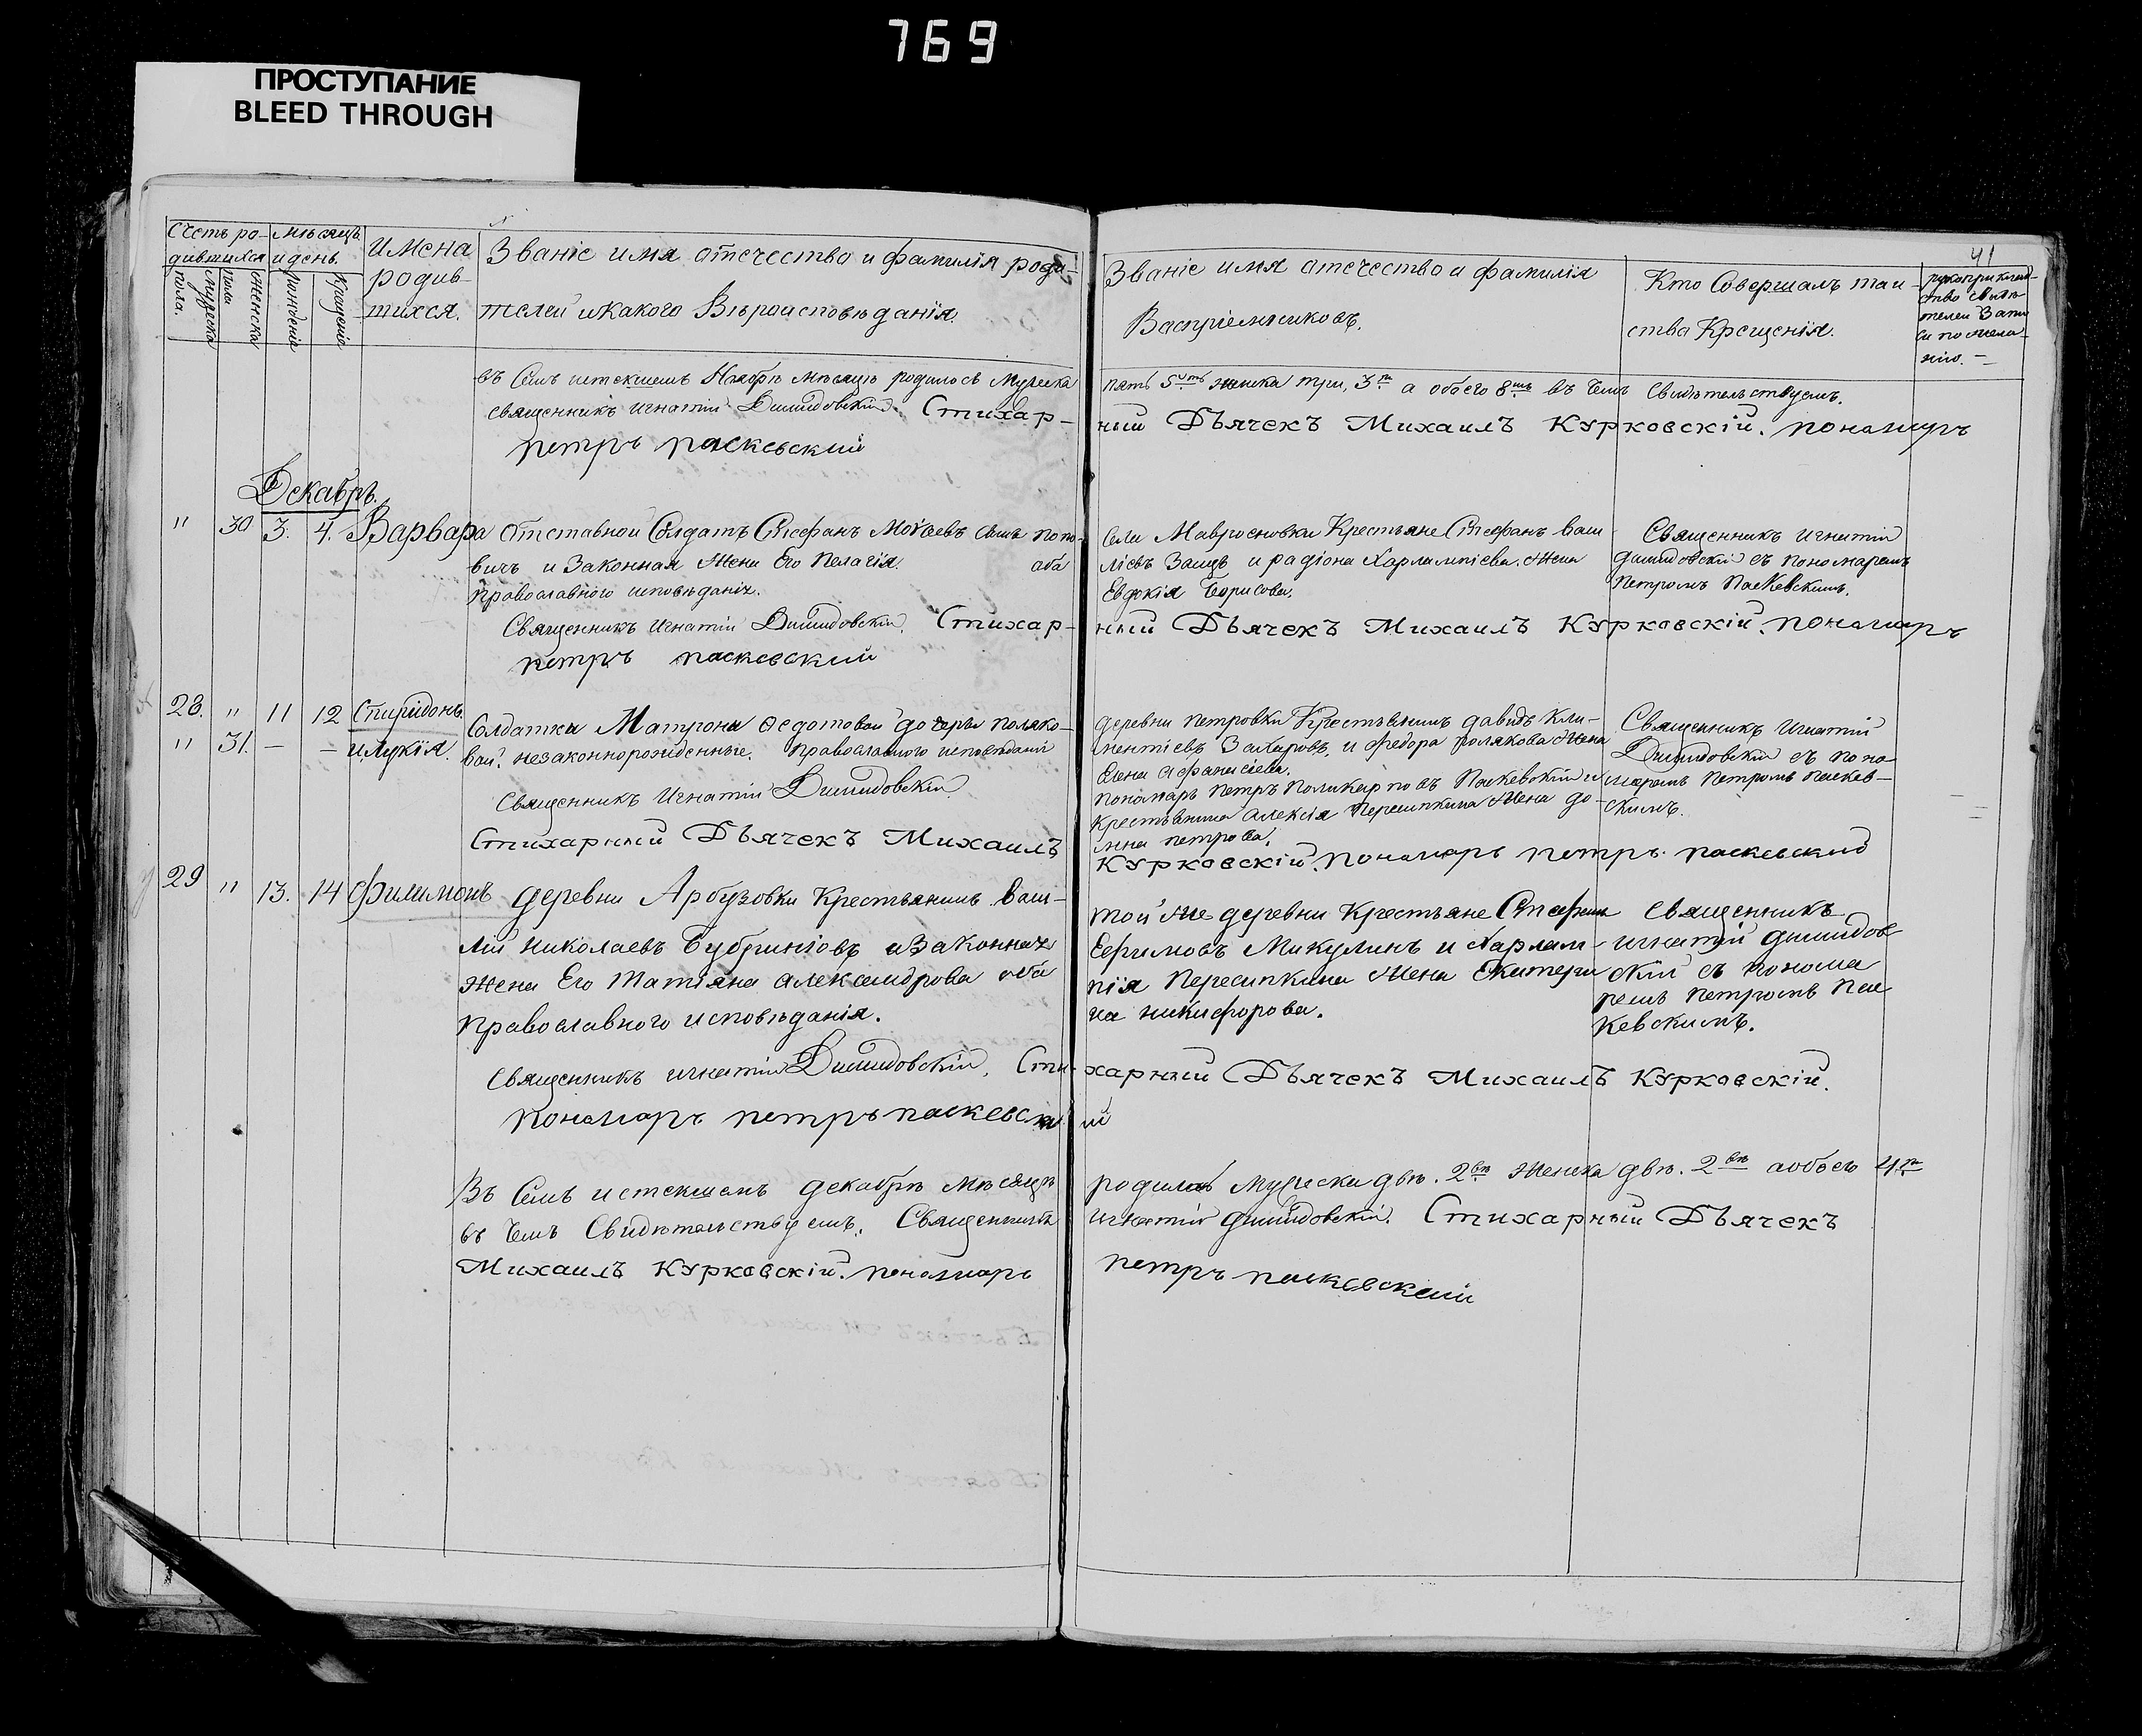 769
ПРОСТУПАНИЕ
BLEED THROUGH
41
Счетъ ро-
дившихся
Мужеска пола.
Женска пола
Мѣсяцъ
и день.
рожденія
Крещенія
Имена
родив-
шихся.
Званіе имя отечество и фамилія роди-
телей и какого Вѣроисповѣданія.
Званіе имя отечество и фамилія
Воспріемниковъ.
Кто Совершалъ таи-
ства Крещенія.
рукоприклад-
ство свидѣ-
телей Запи
си по жела-
нію. –
въ Семъ истекшемъ Ноябрѣ мѣсяцѣ родилось Мужеска пять 5ть женска три, 3 а обоего 8мь въ чемъ Свидѣтельствуемъ.
Священникъ Игнатій Стихар-ный Дьячекъ Михаилъ Курковскій. пономарь
петръ паскевский
Декабрь.
" 30 3. 4. Варвара
Отставной Солдатъ Стефанъ сынъ попо-
вичъ и Законная Жена Его Пелагія. оба
православного исповѣданія.
Села Крестьяне Стефанъ Васи-
ліевъ Заецъ и радіона Харлампіева Жена
Евдокія Борисова.
Священникъ Игнатій
съ пономаремъ
Петромъ Паскевскимъ.
Священникъ Игнатій Стихар-ный Дьячекъ Михаилъ Курковскій. пономарь
петръ паскевский
28. " 11 12 Спиридонъ
" 31. – – и Лукія.
Солдатки Матрона Федотовой дочери поляко-
вой. незаконнорожденные. Православного исповѣданія
деревни петровки Крестьянинъ давидъ Кли-
ментіевъ Захаровъ. и федора полякова Жена
Елена Афанасіева.
пономарь Петръ Поликарповъ Паскевский и
Крестьянина Алексія Пересипкина Жена до-
мна петрова.
Священникъ Игнатій
съ поно-
маремъ Петромъ паскев-
скимъ.
Священникъ Игнатій
Стихарный Дьячекъ Михаилъ Курковскій. пономарь петръ паскевский
29 " 13. 14 Филимонъ
деревни Арбузовки Крестьянинъ Васи-
лій Николаевъ и Законная
Жена Его Татіяна Александрова оба
Православного исповѣданія.
той же деревни Крестьяне Стефанъ
Ефимовъ Микулинъ и Харлам-
пія Пересипкина Жена Екатери
на никифорова.
Священникъ
игнатій
съ понома
ремъ Петромъ Пас
кевскимъ.
Священникъ игнатій Сти-харный Дьячекъ Михаилъ Курковскій.
пономарь петръ паскевский
Въ Семъ истекшемъ декабрѣ мѣсяцѣ родилось Мужеска двѣ. 2вѣ Женска двѣ. 2вѣ а обоего 4
въ чемъ Свидѣтельствуемъ. Священникъ игнатій Стихарный Дьячекъ
Михаилъ Курковскій. пономарь петръ паскевский